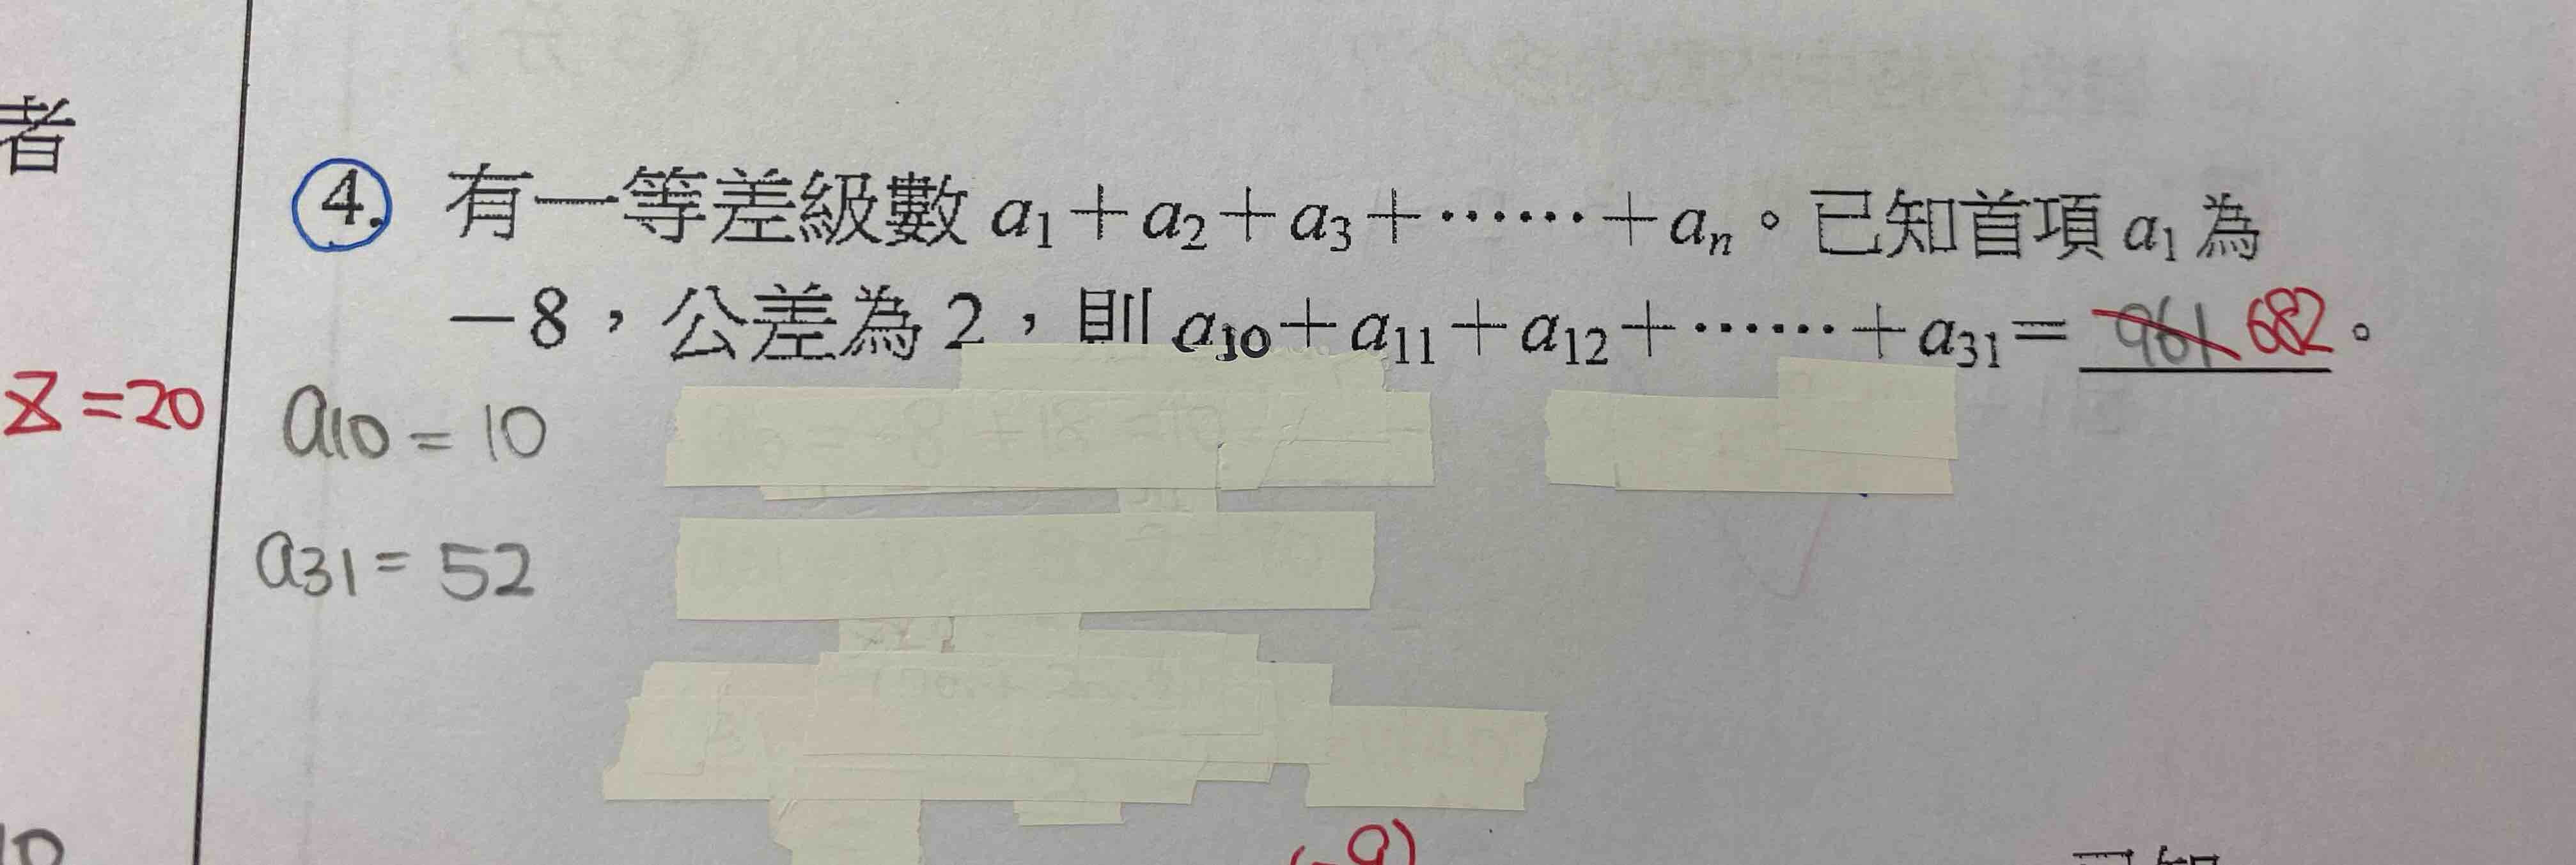 者
4. 有一等差級數 a₁＋a₂＋a₃＋⋯⋯＋aₙ。已知首項 a₁ 為
－8，公差為 2，則 a₁₀＋a₁₁＋a₁₂＋⋯⋯＋a₃₁＝ 961 682。
Z=20
a₁₀ = 10
a₃₁ = 52
10
(-9)
已知